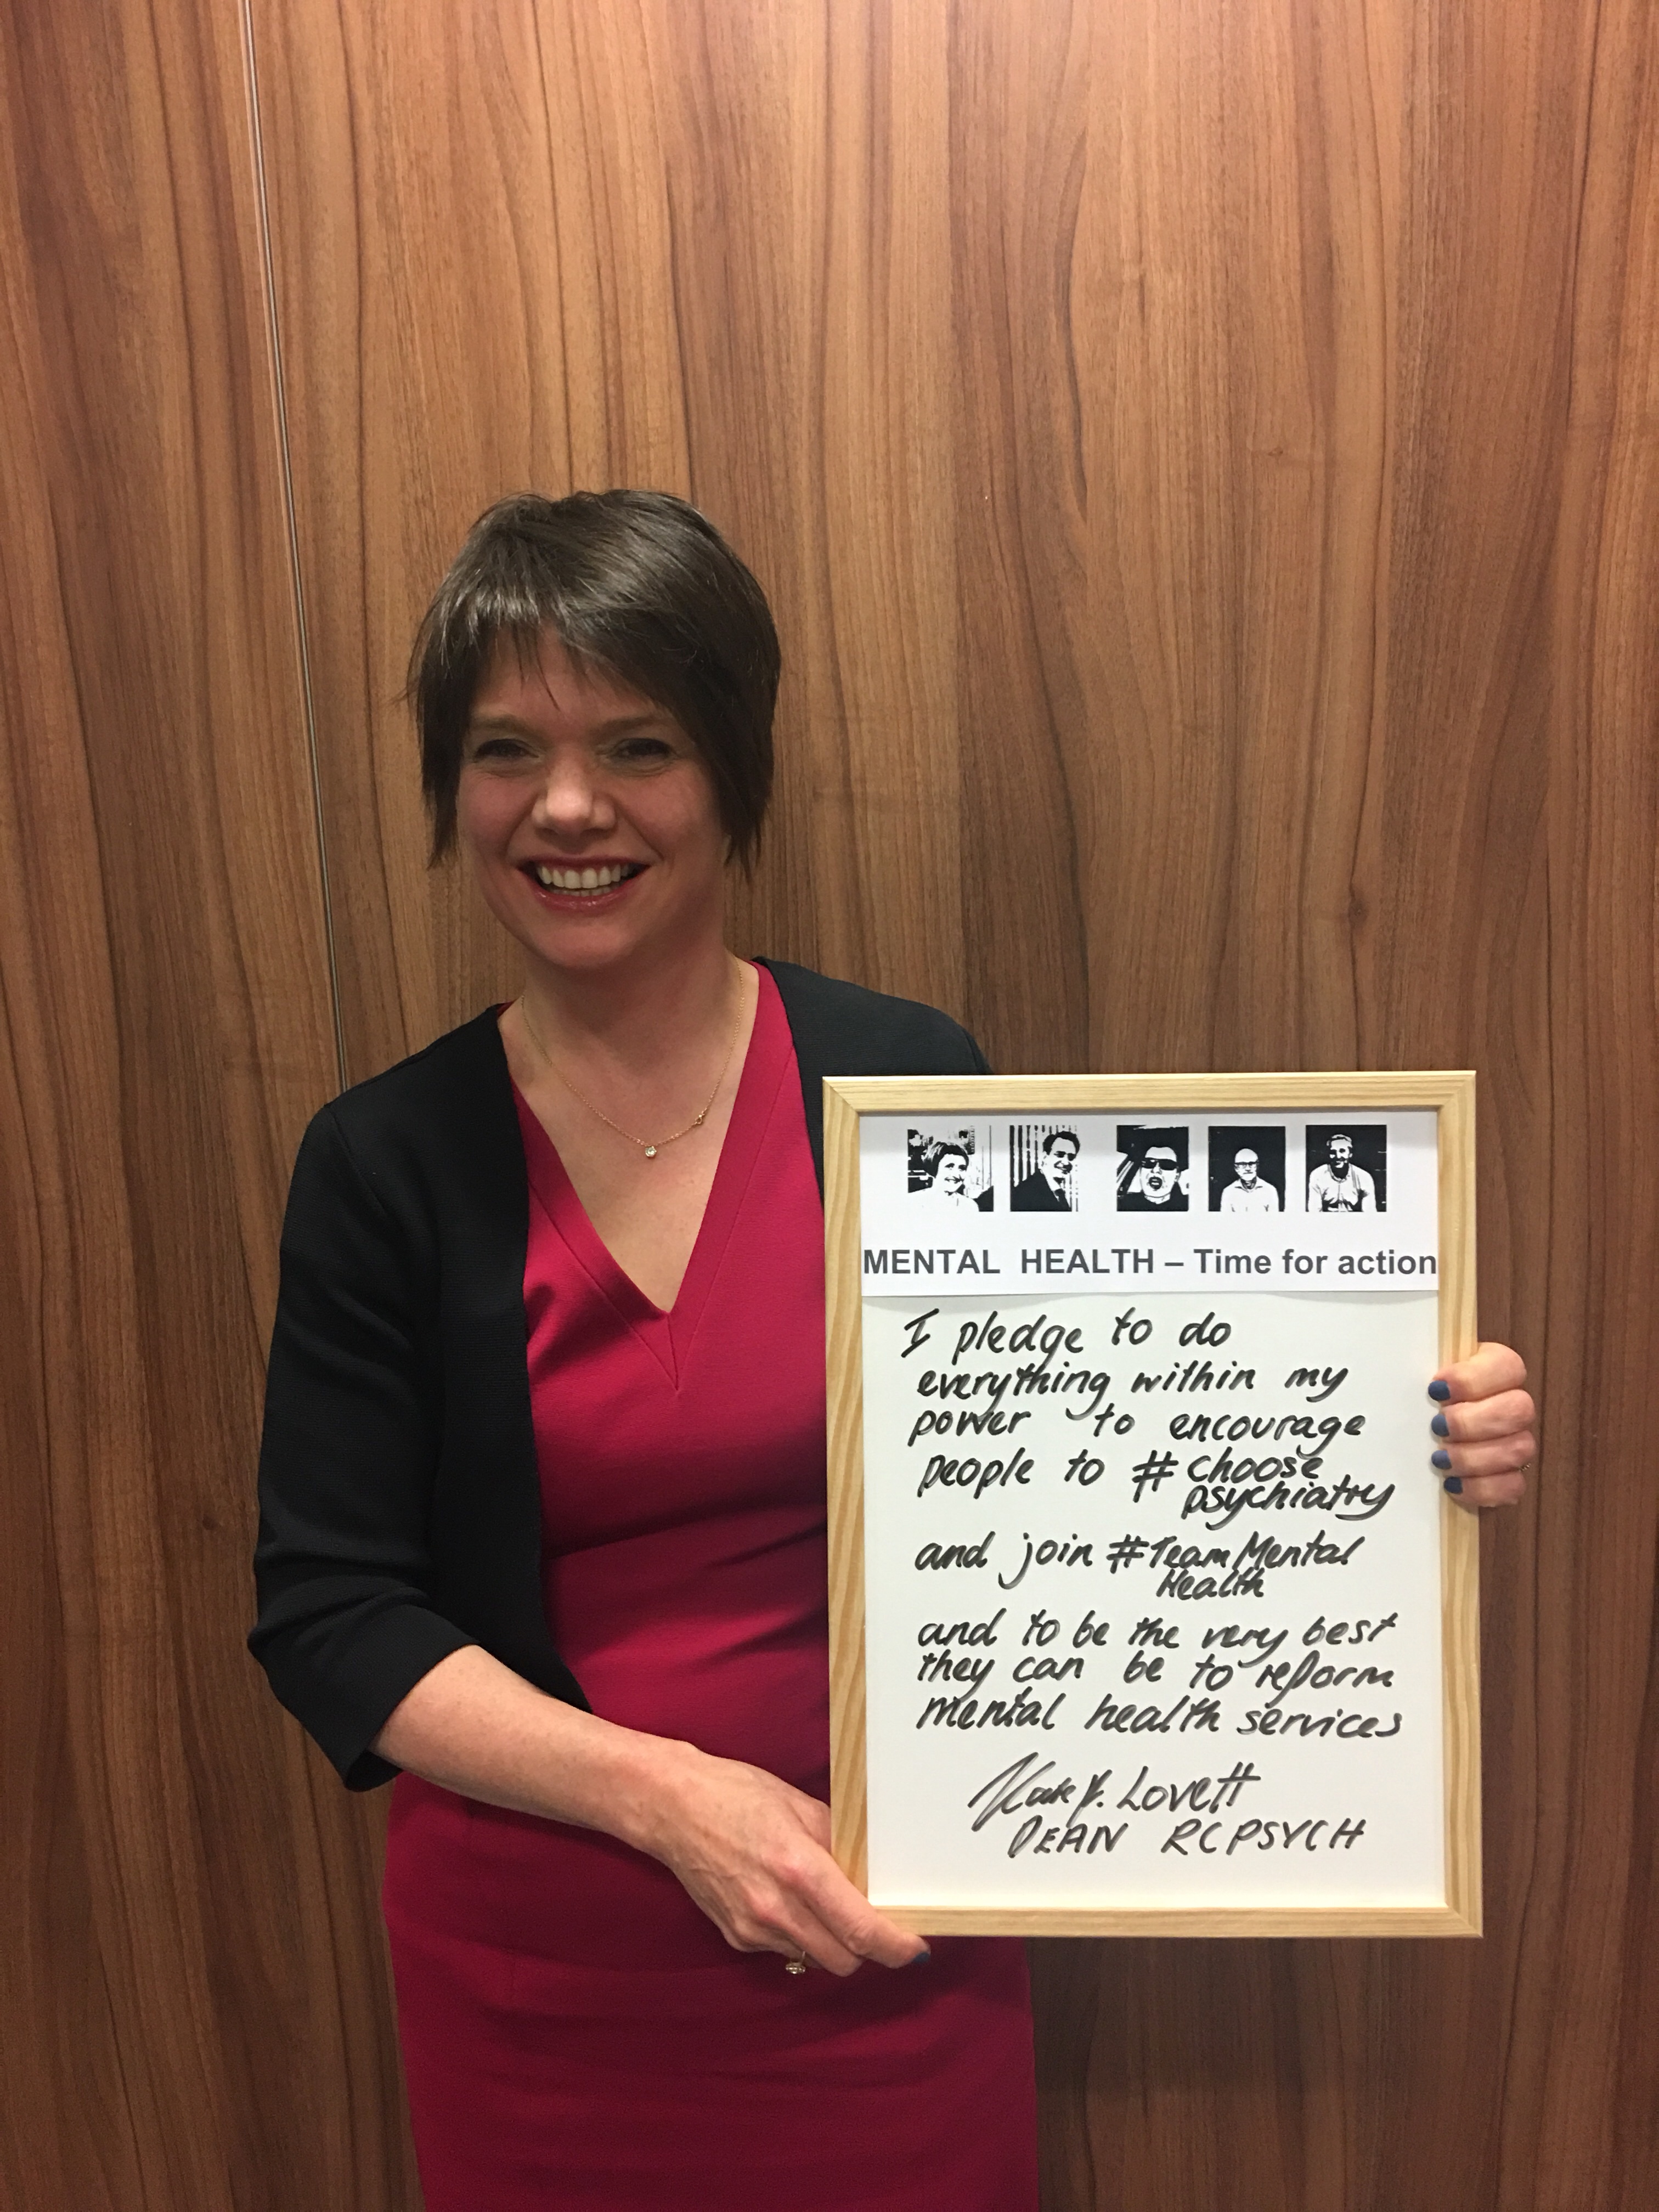 MENTAL HEALTH – Time for action
I pledge to do
everything within my
power to encourage
people to # choose
psychiatry
and join #TeamMental
Health
and to be the very best
they can be to reform
mental health services
Kate J. Lovett
DEAN RCPSYCH